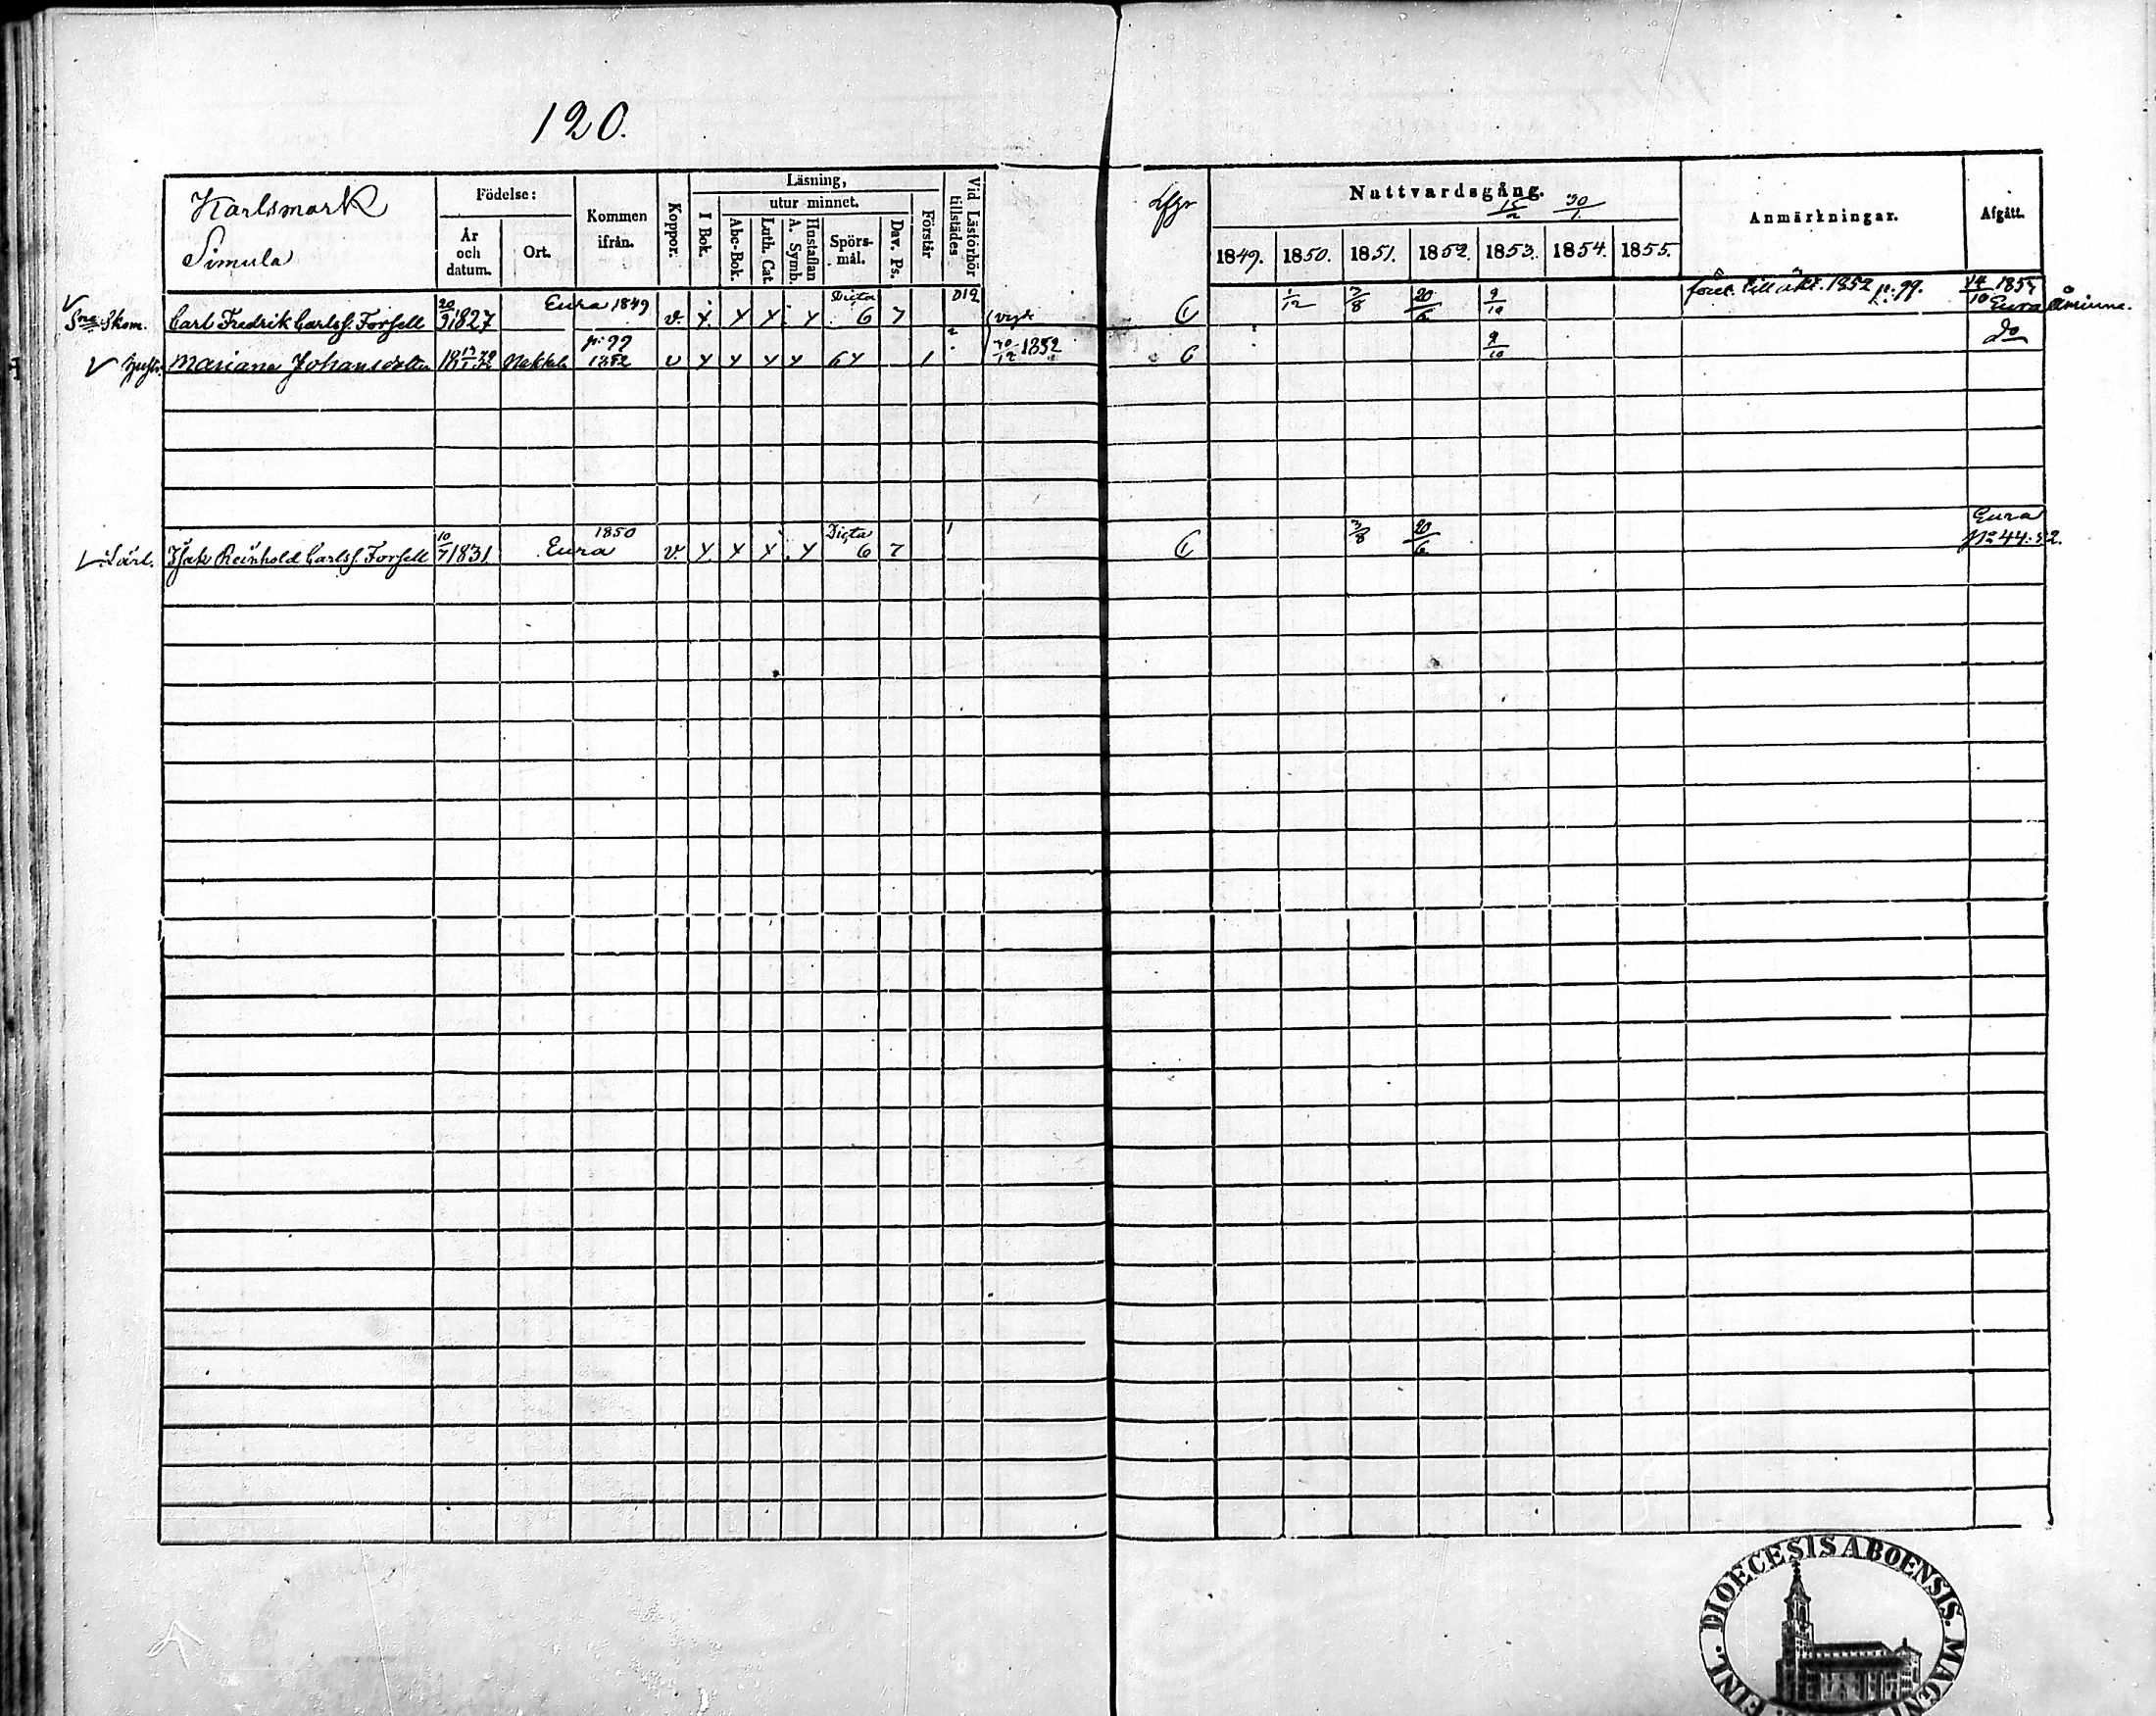 120.
Karlsmark
Simula
Födelse:
År och datum.
Ort.
Kommen ifrån.
Koppor.
Läsning,
I Bok.
utur minnet.
Abc-Bok.
Luth. Cat.
A. Symb. Hustaflan
Spörs-mål.
Dav. Ps.
Förstår
Vid Läsförhör tillstädes
Nattvardsgång.
15/2 30/1
1849. 1850. 1851. 1852. 1853. 1854. 1855.
Anmärkningar.
Afgått.
Skom. Carl Fredrik Carlss. Forsell 20/9 1827 Eura 1849 v. Y Y Y Y Dicta 6 7 1/12 3/8 20/6 9/10 till äkt. 1852 p: 99. 14/10 1853 Eura Åminne.
Hustr. Mariana Johansdotter Nakkila p: 99 1852 v Y Y Y Y 6 Y 1 30/12 1852 9/10 do
Lärl. Isak Reinhold Carlss. Forsell 10/7 1831 Eura 1850 v. Y Y Y Y Dicta 6 7 1 3/8 20/6 Eura No 44. 52.
FINL. DIOECESIS ABOENSIS. MAGNI